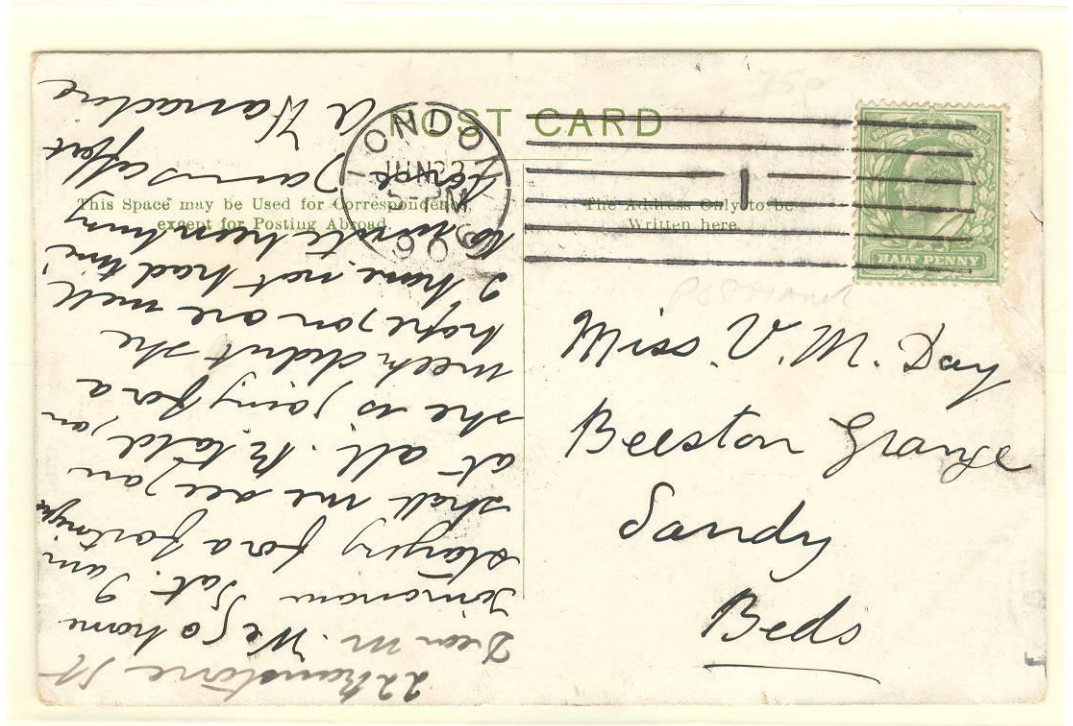 POST CARD
This Space may be Used for Correspondence,
except for Posting Abroad.
The Address Only to be
Written here.
LONDON
JUN 22
5- PM
906
1
HALF PENNY
Miss. V. M. Day
Beeston Grange
Sandy
Beds
22 St
Dear M. We go home
Tomorrow Sat. I am
staying for a fortnight
shall me see you
at all. M. told you
she is going for a
week didn't she
hope you are well
I have not had time
to write been busy
love
A